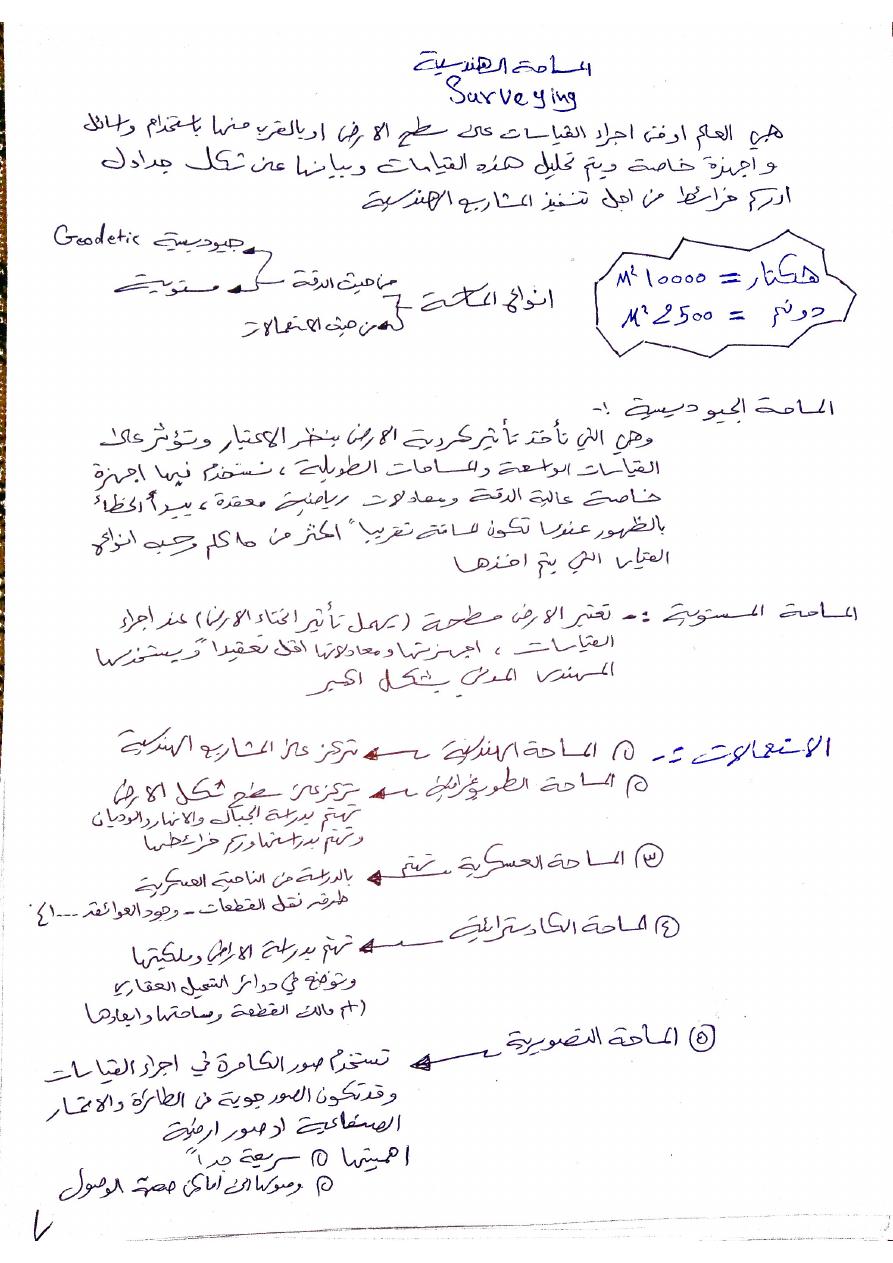 المساحة الهندسية
Surveying
هي العلم او فن اجراء القياسات على سطح الارض او بالقرب منها باستخدام وسائل
واجهزة خاصة ويتم تحليل هذه القياسات وبيانها على شكل جداول
او رسم خرائط من اجل تنفيذ المشاريع الهندسية
هكتار = 10000 M²
دونم = 2500 M²
انواع المساحة
من حيث الدقة
جيوديسية Geodetic
مستوية
من حيث الاستعمالات
المساحة الجيوديسية :-
وهي التي تأخذ تأثير كروية الارض بنظر الاعتبار وتؤثر على
القياسات الواسعة والمسافات الطويلة ، نستخدم فيها اجهزة
خاصة عالية الدقة ومعادلات رياضية معقدة ، يبدأ الخطأ
بالظهور عندما تكون المسافة تقريباً اكثر من كلم وحسب انواع
القياس التي يتم اخذها
المساحة المستوية :- تعتبر الارض مسطحة (يهمل تأثير انحناء الارض) عند اجراء
القياسات ، اجهزتها ومعادلاتها اقل تعقيداً ويستخدمها
المهندس المدني بشكل اكبر
الاستعمالات :- ① المساحة الهندسية تركز على المشاريع الهندسية
② المساحة الطوبوغرافية تركز على سطح شكل الارض
تهتم بدراسة الجبال والانهار والوديان
وتهتم بدراستها ورسم خرائطها
③ المساحة العسكرية تهتم بالدراسة من الناحية العسكرية
طرق نقل القطعات - وجود العوائق ---
④ المساحة الكادسترائية تهتم بدراسة الاراضي وملكيتها
وتوضع في دوائر التسجيل العقاري
(اسم مالك القطعة ومساحتها وابعادها
⑤ المساحة التصويرية تستخدم صور الكامرة في اجراء القياسات
وقد تكون الصور جوية من الطائرة والاقمار
الصناعية او صور ارضية
اهميتها ① سريعة جداً
② وصولها الى اماكن صعبة الوصول